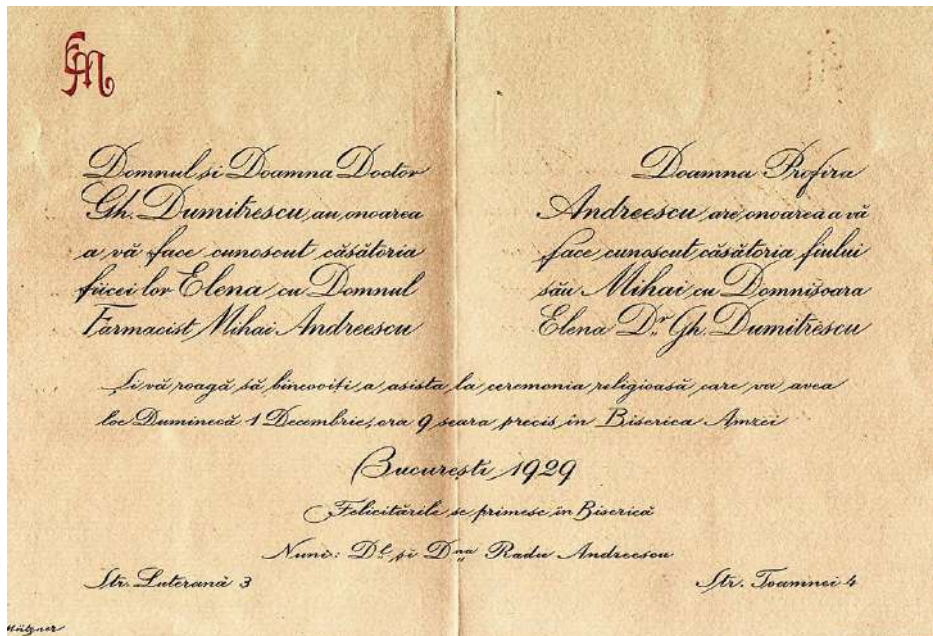 EM
Domnul și Doamna Doctor
Gh. Dumitrescu, au onoarea
a vă face cunoscut căsătoria
fiicei lor Elena cu Domnul
Farmacist Mihai Andreescu
Doamna Profira
Andreescu are onoarea a vă
face cunoscut căsătoria fiului
său Mihai cu Domnișoara
Elena Dr. Gh. Dumitrescu
Și vă roagă să bincoviți a asista la ceremonia religioasă care va avea
loc Duminecă 1 Decembrie, ora 9 seara precis, în Biserica Amzei
București 1929
Felicitările se primesc în Biserică
Nuni: Dl și Dna Radu Andreescu
Str. Luterană 3
Str. Toamnei 4